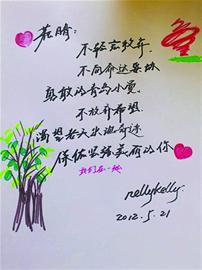 不轻言放弃，
不向命运妥协
勇敢的
不放弃希望
渴望老天出现奇迹
保佑坚强美丽的你
我们在一起
nellykelly.
2012.5.21